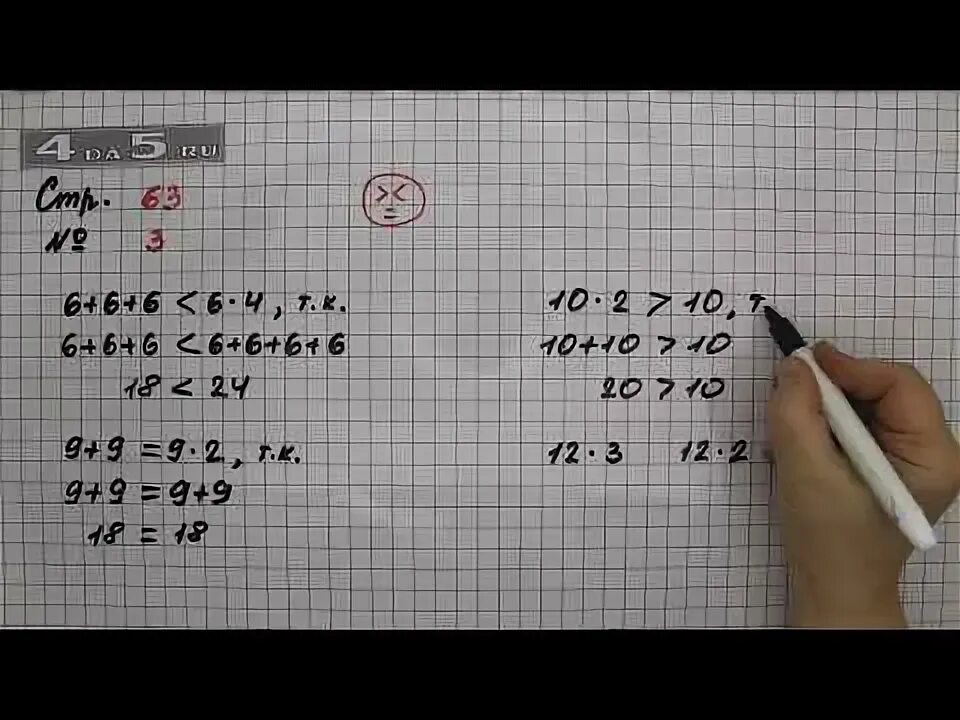 4 DA 5 .RU
Стр. 63
><
=
№ 3
6+6+6 < 6·4, т.к.
6+6+6 < 6+6+6+6
18 < 24
9+9 = 9·2, т.к.
9+9 = 9+9
18 = 18
10·2 > 10, т
10+10 > 10
20 > 10
12·3 12·2